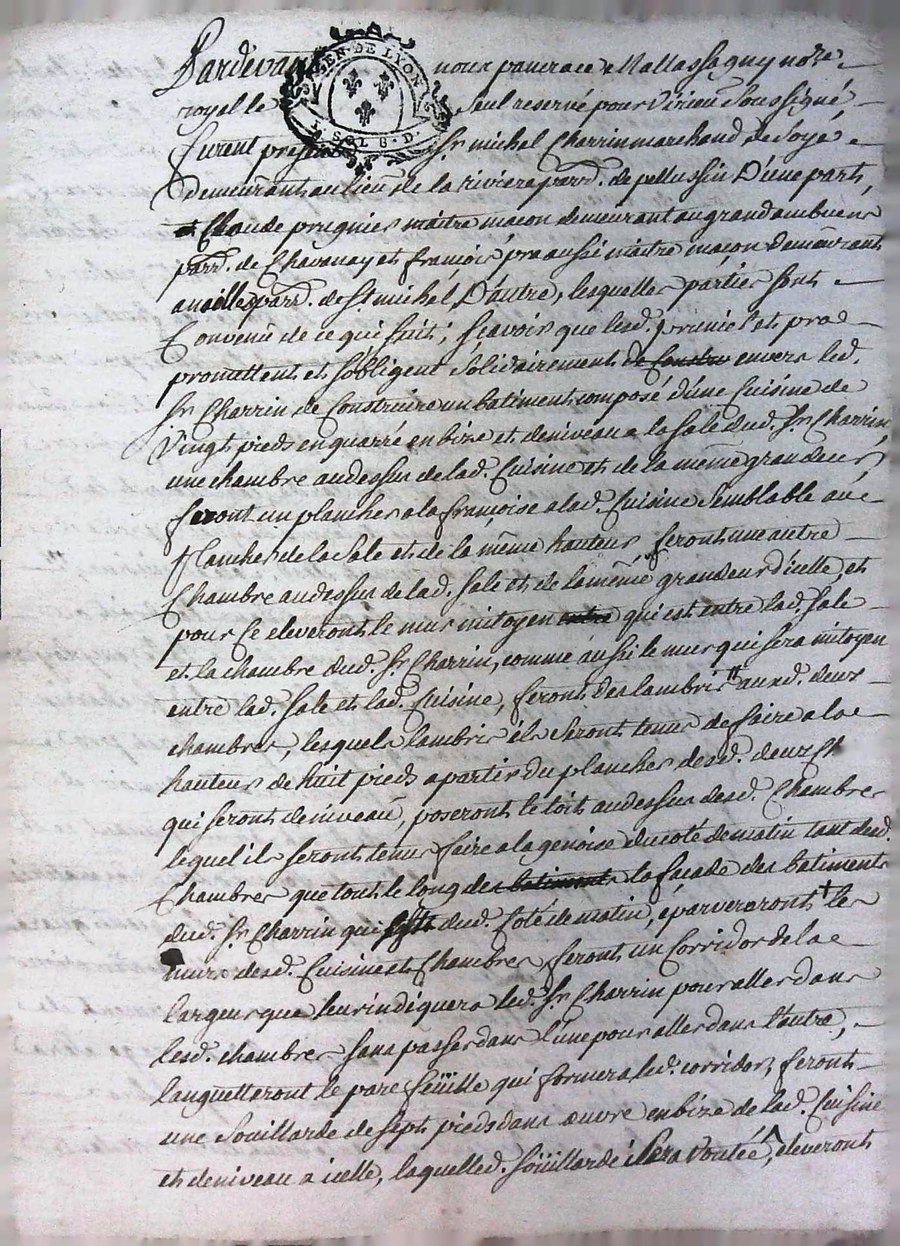 Pardevant nous pancrace Mallassagny notre
royal le seul reservé pour Virieu soussigné
GEN. DE LYON
SOL 6. D.
furent presents Sr. michel Charrin marchand de soye
demeurant au lieu de la riviere parr. de pellussin D'une part,
et Claude prugnier maitre macon demeurant au grand ambuent
parr. de Chavanay et françois pra aussi maitre maçon demeurant
parr. de st. michel D'autre, lesquelles parties sont
Convenu de ce qui suit; scavoir que lesd. prunier et pra
promettent et sobligent solidairement de Constru envers led.
Sr. Charrin de Construire un batiment composé d'une Cuisine de
Vingt pieds en quarré en bize et de niveau a la sale dud. Sr. Charrin,
une chambre au dessus de lad. Cuisine et de la même grandeur,
feront un plancher a la françoise a lad. Cuisine semblable au
plancher de la sale et de la même hauteur, feront une autre
Chambre au dessus de lad. sale et de la même grandeur d'icelle, et
pour Ce eleveront le mur mitoyen entre qui est entre lad. sale
et la chambre dud. Sr. Charrin, comme aussi le mur qui sera mitoyen
entre lad. sale et lad. Cuisine, feront des lambris auxd. deux
chambres, lesquels lambris ils seront tenus de faire a la
hauteur de huit pieds a partir du plancher desd. deux Ch
qui seront de niveau, poseront le toit au dessus desd. Chambres
lequel ils seront tenus faire a la genoise du coté de matin tant desd.
Chambres que tout le long des batiments la façade des batiments
dud. Sr. Charrin qui dud. Coté de matin, éparvereront + les
murs desd. Cuisine et Chambres, feront un Corridor de la
largeur que leur indiquera led. Sr. Charrin pour aller dans
lesd. chambres sans passer dans l'une pour aller dans l'autre,
languetteront le pare feüille qui formera led. corridor, feront
une souillarde de sept pieds dans œuvre en bize de lad. Cuisine
et de niveau a icelle, laquelled. soüillarde sera Voutée, eleveront